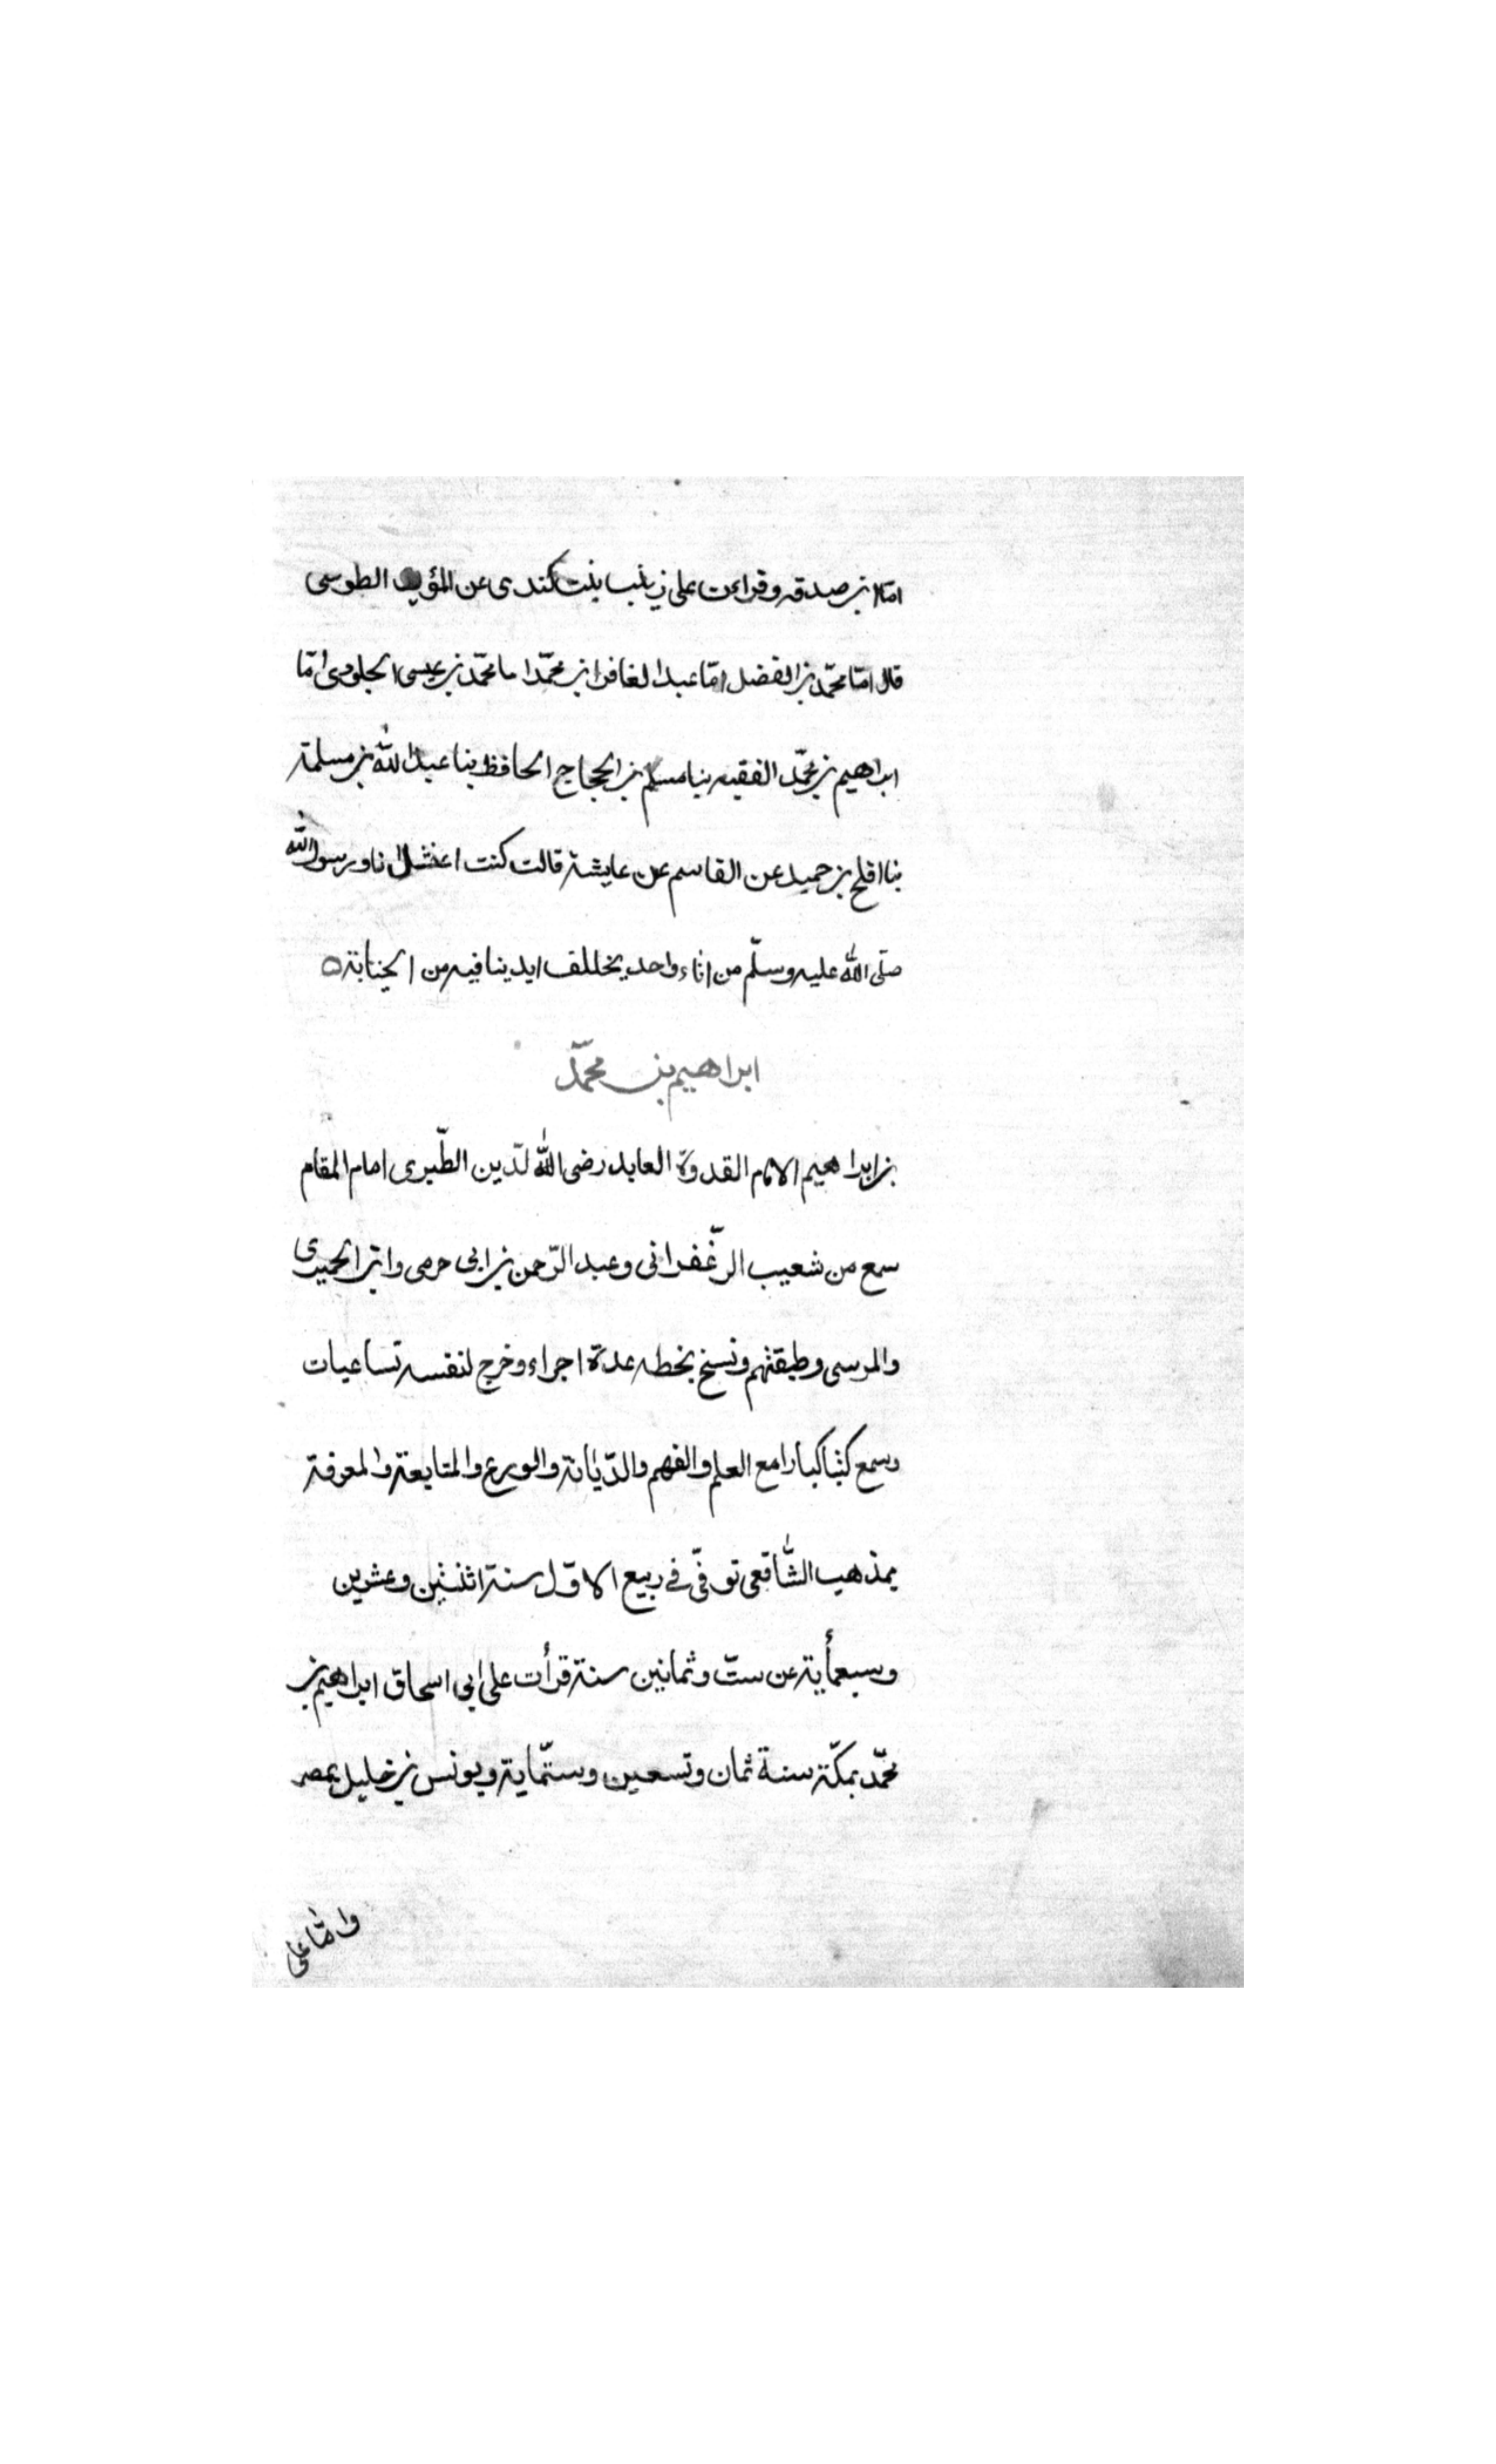 امّا ابن صدقه وقراءت على زينب بنت كندى عن المؤيد الطوسى
قال امّا محمّد بن الفضل امّا عبد الغافر ابن محمّد اما محمّد بن عيسى الجلودى امّا
ابراهيم بن محمّد الفقيه بنا مسلم بن الحجاج الحافظ بنا عبد الله بن مسلمة
بنا افلح بن حميد عن القاسم عن عايشة قالت كنت اغتشل انا ورسول الله
صلّى الله عليه وسلّم من اناء واحد يختلف ايدينا فيه من الجنابة ه
ابراهيم بن محمّد
بن ابراهيم الامام القدوة العابد رضى الله لدّين الطّبرى امام المقام
سمع من شعيب الزّغفرانى وعبد الرّحمن بن ابى حرمى وابن الحميدى
والمرسى وطبقتهم ونسخ بخطه عدّة اجراء وخرج لنفسه تساعيات
وسمع كتبا كبارا مع العلم والفهم والدّيانة والورع والمتابعة والمعرفة
بمذهب الشّافعى توفّى فى ربيع الاوّل سنة اثنتين وعشرين
وسبعمأية عن ستّ وثمانين سنة قرأت على ابى اسحاق ابراهيم بن
محمّد بمكّة سنة ثمان وتسعين وستّماية ويونس بن خليل بمصر
وامّا على